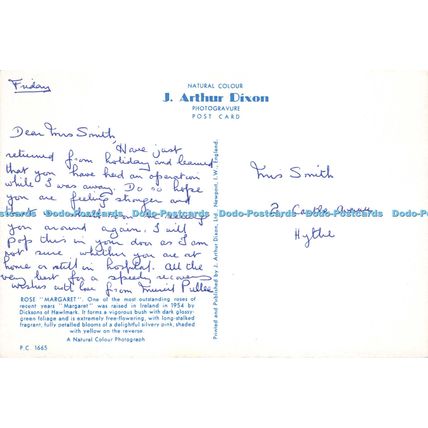 Friday
NATURAL COLOUR
J. Arthur Dixon
PHOTOGRAVURE
POST CARD
Dear Mrs Smith
Have just
returned from holiday and learned
that you have had an operation
while I was away. Do so hope
you are feeling stronger and
you around again. I will
pop this in your door as I am
not sure whether you are at
home or still in hospital. All the
very best for a speedy recovery
wishes with love from Muriel
Mrs Smith
2
Avenue
Hythe
Dodo-Postcards Dodo-Postcards Dodo-Postcards Dodo-Postcards Dodo-Postcards Dodo-Postcards
Printed and Published by J. Arthur Dixon, Ltd., Newport, I.W., England.
ROSE "MARGARET". One of the most outstanding roses of
recent years "Margaret" was raised in Ireland in 1954 by
Dicksons of Hawlmark. It forms a vigorous bush with dark glossy-
green foliage and is extremely free-flowering, with long-stalked
fragrant, fully petalled blooms of a delightful silvery pink, shaded
with yellow on the reverse.
A Natural Colour Photograph
P.C. 1665